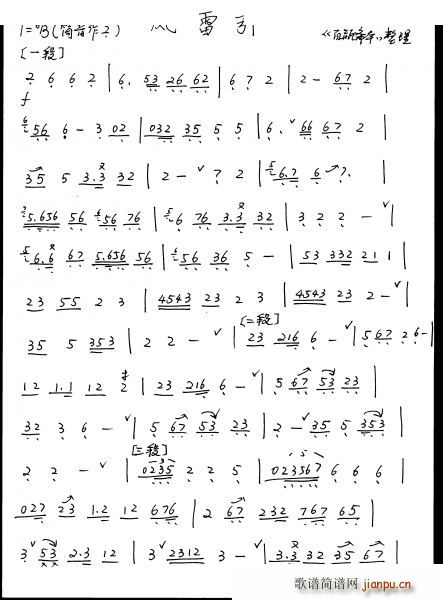 风雷引
1=ᵇB(筒音作2) 整理
[一段]
2 6 6 2 | 6. 53 26 62 | 6 7 2 | 2 - 67 2 |
56 6 - 3 02 | 032 35 5 5 | 6. ˅ 66 67 2 |
35 5 3.3 32 | 2 - ˅ 7 2 | 6.7 6 7. |
5.656 56 56 76 | 6 76 3.3 32 | 3 2 2 - ˅ |
6.6 67 5.656 56 | 56 36 5 - | 53 332 2 1 1 |
23 55 2 3 | 4543 23 2 3 | 4543 23 2 - ˅ |
[二段]
35 5 353 | 2 2 - ˅ | 23 216 6 - ˅ | 5 67 2 6 - |
12 1.1 12 2 | 23 216 6 - ˅ | 5 67 53 23 |
32 3 6 - ˅ | 5 67 53 23 | 2 - ˅ 35 5 353 |
[三段]
2 2 - ˅ | 0235 2 2 5 | 023567 6 6 6 |
027 23 1.2 12 676 | 2 67 232 767 65 |
3 ˅ 53 2.3 12 | 3 ˅ 2312 3 - ˅ | 3.3 32 35 67 |
歌谱简谱网
jianpu.cn